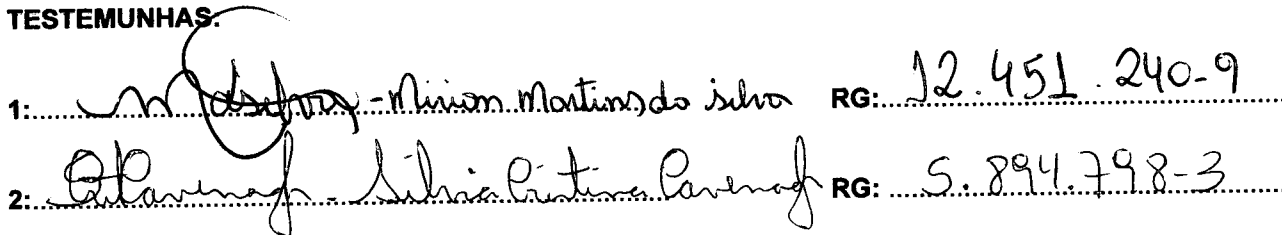 TESTEMUNHAS:
1: MdSilva - Miriam Martins da Silva RG: 12.451.240-9
2: - Silvia Cristina Cavenagh RG: 5.894.798-3